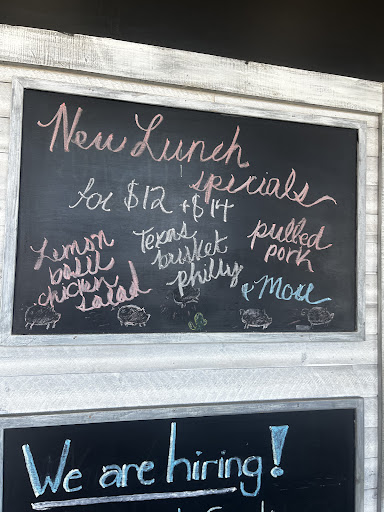 New Lunch
specials
for $12 + $14
Lemon
basil
chicken
salad
Texas
brisket
philly
pulled
pork
& More
We are hiring!